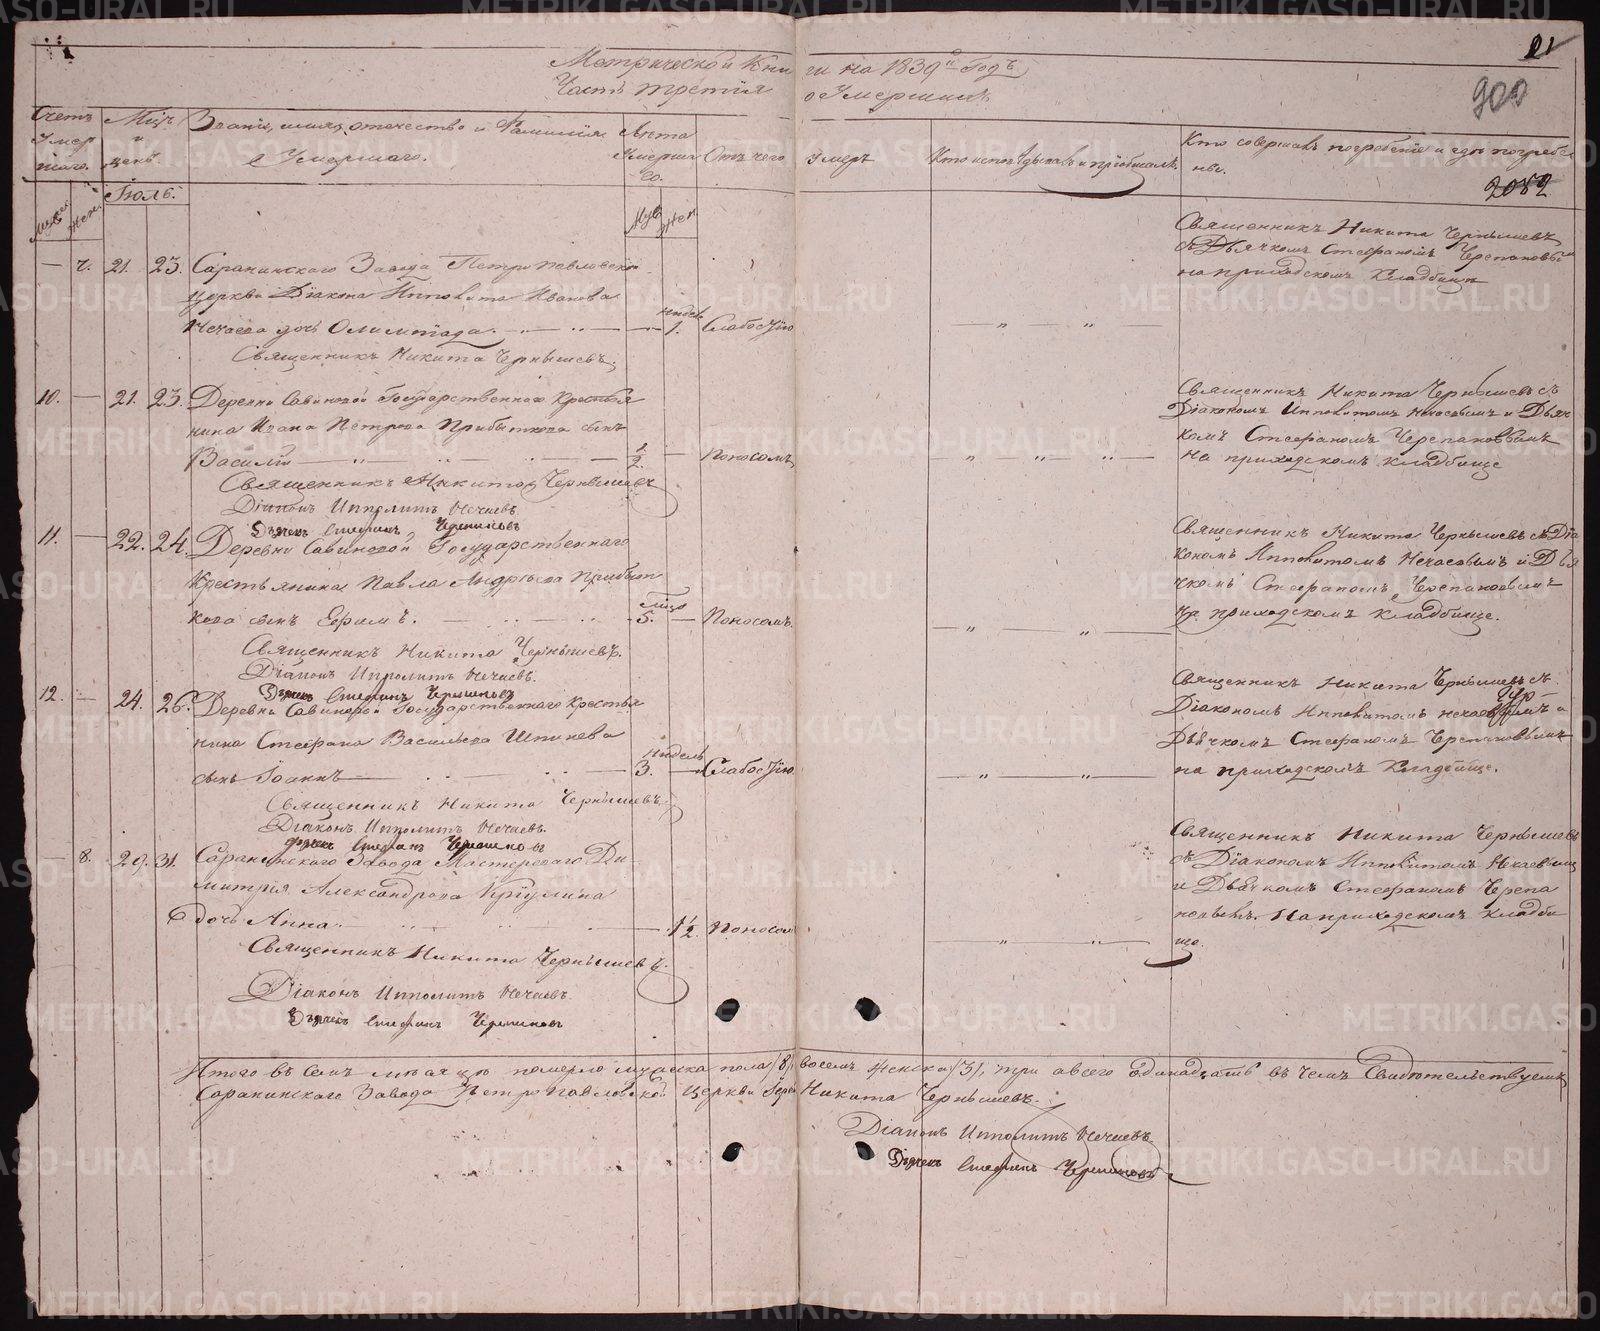 21
900
Метрической Книги на 1839й Годъ
Часть третія о Умершихъ
Счетъ Умершаго.
Мцъ и день.
Званіе, имя, отечество и Фамилія Умершаго.
Лѣта Умершаго.
Отъ чего умеръ
Кто исповѣдывалъ и пріобщалъ.
Кто совершалъ погребеніе и гдѣ погребены.
2052
Іюль.
Муж Жен
Муж Жен
— 7. 21. 23. Саранинскаго Завода Петропавловской
церкви Діакона Ипполита Иванова
Нечаева дочь Олимпіада. — недел. 1. Слабостію
Священникъ Никита Чернышевъ.
Священникъ Никита Чернышевъ
съ Дьячкомъ Стефаномъ Черепановымъ
на приходскомъ Кладбище
10. — 21. 23. Деревни Савиновой Государственнаго Крестья
нина Ивана Петрова Прибыткова сынъ
Василій — 1/2. — Поносомъ
Священникъ Никита Чернышевъ
Діаконъ Ипполитъ Нечаевъ
Дьячекъ Стефанъ Черепановъ
Священникъ Никита Чернышевъ съ
Діакономъ Ипполитомъ Нечаевымъ и Дьяч
комъ Стефаномъ Черепановымъ
на приходскомъ кладбище
11. — 22. 24. Деревни Савиновой Государственнаго
Крестьянина Павла Андреева Прибыт
кова сынъ Ефимъ. — 5. — Поносомъ.
Священникъ Никита Чернышевъ.
Діаконъ Ипполитъ Нечаевъ.
Дьячекъ Стефанъ Черепановъ
Священникъ Никита Чернышевъ съ Діа
кономъ Ипполитомъ Нечаевымъ и Дья
чкомъ Стефаномъ Черепановымъ
на приходскомъ кладбище.
12. — 24. 26. Деревни Савиновой Государственнаго Крестья
нина Стефана Васильева Шпинева
сынъ Іоаннъ — недель 3. — Слабостію
Священникъ Никита Чернышевъ
Діаконъ Ипполитъ Нечаевъ.
Дьячекъ Стефанъ Черепановъ
Священникъ Никита Чернышевъ съ
Діакономъ Ипполитомъ Нечаевымъ и
Дьячкомъ Стефаномъ Черепановымъ
на приходскомъ Кладбище.
— 8. 29. 31. Саранинскаго Завода Мастероваго Ди
митрія Александрова Кріулина
дочь Анна. — 1 1/2. Поносомъ
Священникъ Никита Чернышевъ.
Діаконъ Ипполитъ Нечаевъ.
Дьячекъ Стефанъ Черепановъ
Священникъ Никита Чернышевъ
съ Діакономъ Ипполитомъ Нечаевымъ
и Дьячкомъ Стефаномъ Черепа
новымъ. На приходскомъ кладби
ще.
Итого въ семъ месяце померло мужска пола /8/ восемъ женска /3/, три а всего Одинадцать въ чемъ Свидетельствуемъ
Саранинскаго Завода Петропавловской Церкви Іерей Никита Чернышевъ.
Діаконъ Ипполитъ Нечаевъ
Дьячекъ Стефанъ Черепановъ
METRIKI.GASO-URAL.RU